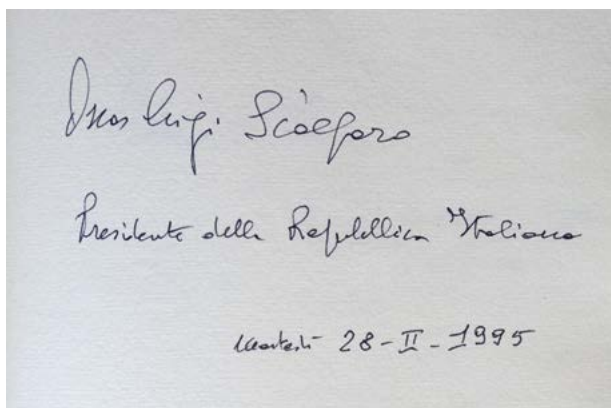 Oscar Luigi Scàlfaro
Presidente della Repubblica Italiana
Martedì 28-II-1995